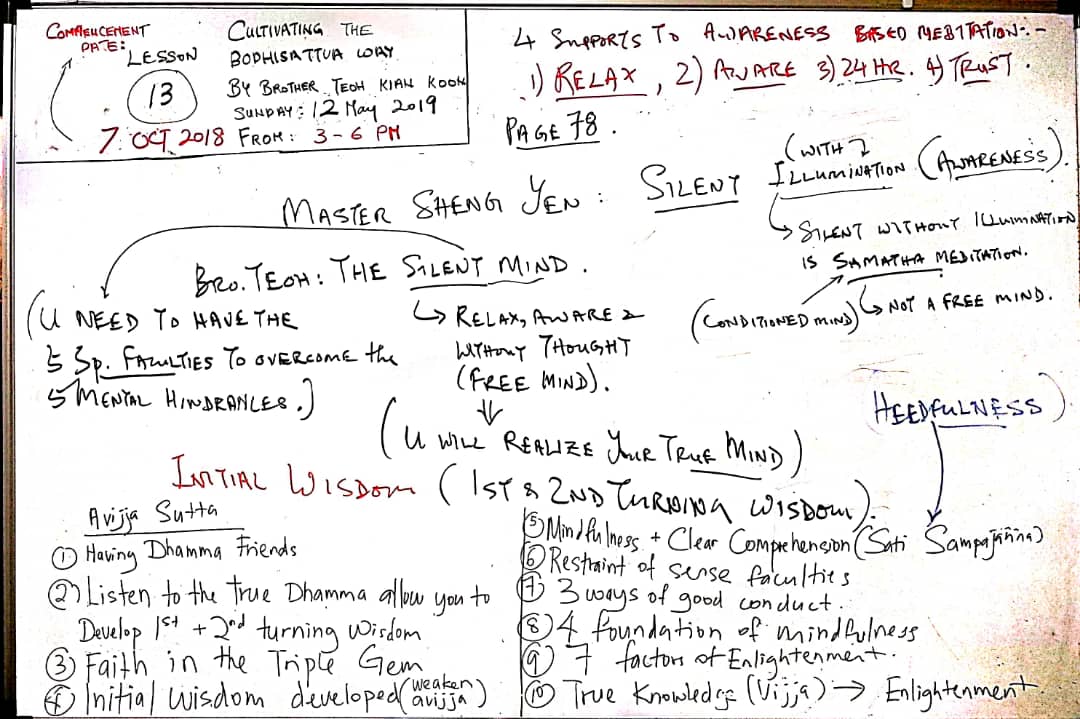 COMMENCEMENT
DATE:
LESSON
13
7 OCT 2018
CULTIVATING THE
BODHISATTVA WAY
BY BROTHER TEOH KIAN KOON
SUNDAY: 12 May 2019
FROM: 3-6 PM
4 SUPPORTS TO AWARENESS BASED MEDITATION:-
1) RELAX, 2) AWARE 3) 24 HR. 4) TRUST.
PAGE 78.
MASTER SHENG YEN: SILENT ILLUMINATION (AWARENESS).
(WITH
↳ SILENT WITHOUT ILLUMINATION
IS SAMATHA MEDITATION.
(CONDITIONED MIND) ↳ NOT A FREE MIND.
BRO. TEOH: THE SILENT MIND.
(U NEED TO HAVE THE
5 Sp. FACULTIES TO OVERCOME the
5 MENTAL HINDRANCES.)
↳ RELAX, AWARE &
WITHOUT THOUGHT
(FREE MIND).
(U WILL REALIZE YOUR TRUE MIND)
HEEDFULNESS)
INITIAL WISDOM (1ST & 2ND TURNING WISDOM).
Avijja Sutta
① Having Dhamma Friends
② Listen to the true Dhamma allow you to
Develop 1st + 2nd turning Wisdom
③ Faith in the Triple Gem
④ Initial wisdom developed (weaken avijja)
⑤ Mindfulness + Clear Comprehension (Sati Sampajañña)
⑥ Restraint of sense faculties
⑦ 3 ways of good conduct.
⑧ 4 foundation of mindfulness
⑨ 7 factors of Enlightenment.
⑩ True Knowledge (Vijja) → Enlightenment.